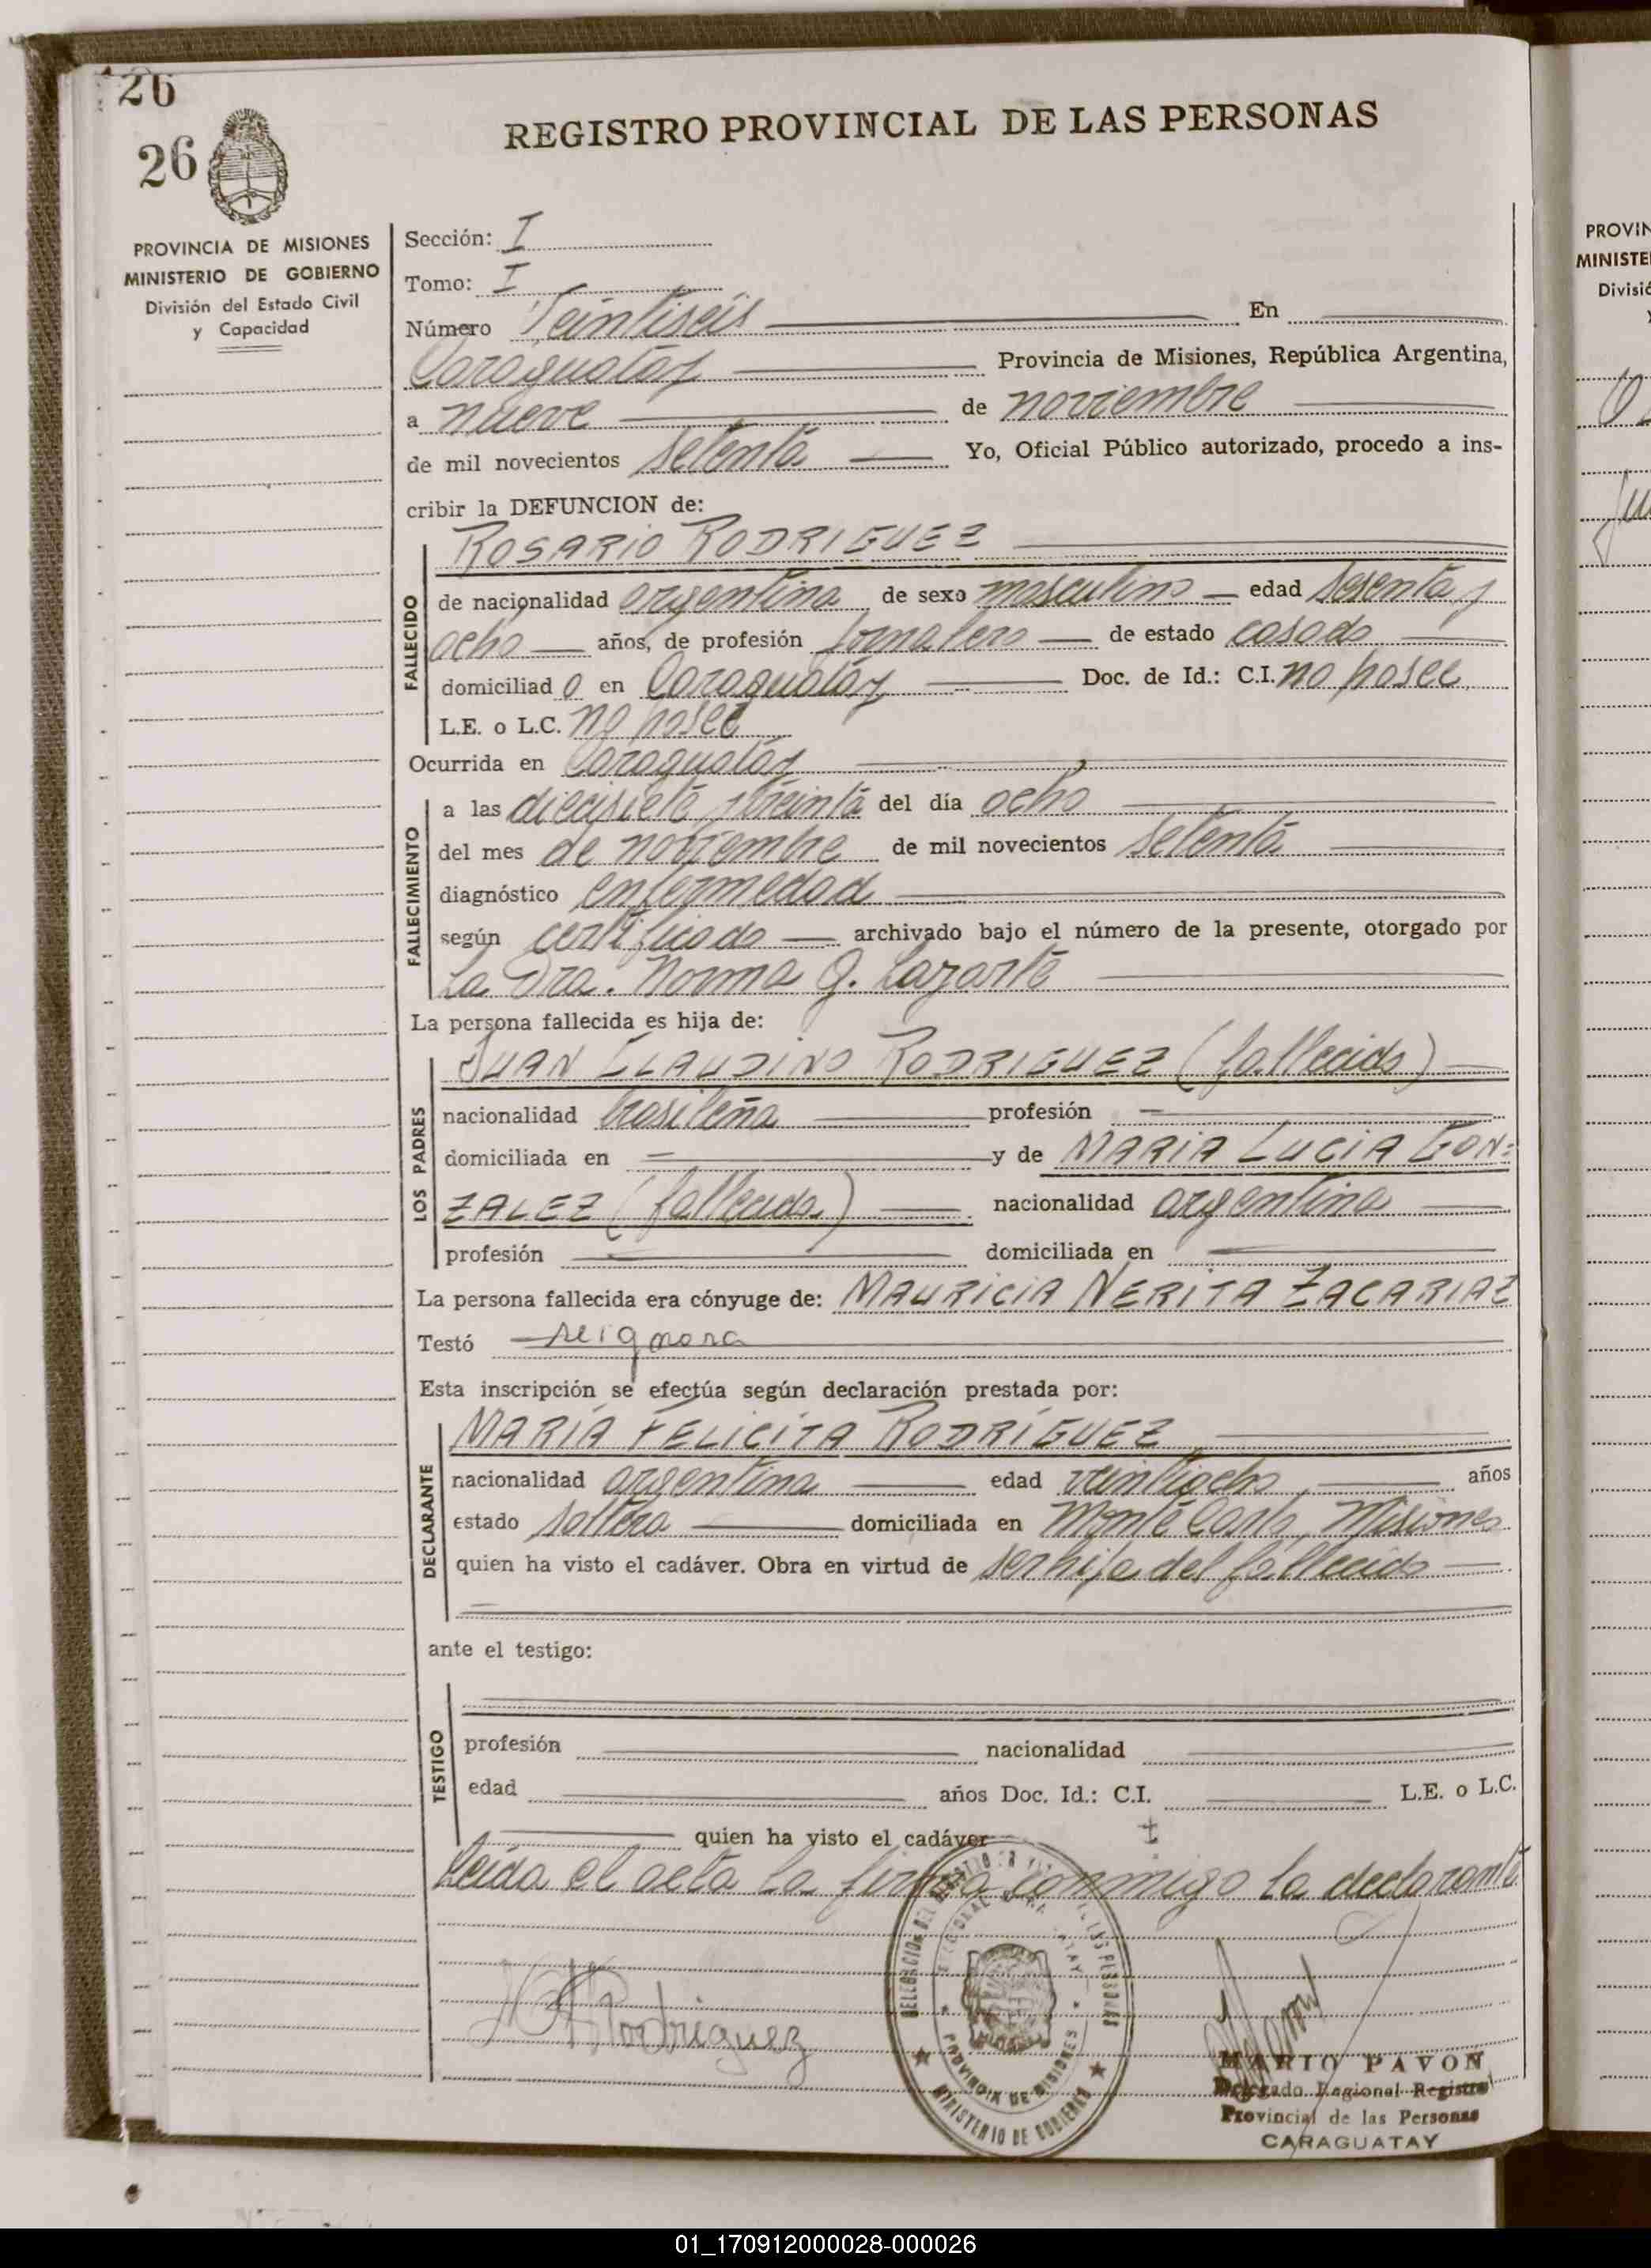 26
26
REGISTRO PROVINCIAL DE LAS PERSONAS
PROVINCIA DE MISIONES
MINISTERIO DE GOBIERNO
División del Estado Civil
y Capacidad
Sección: I
Tomo: I
Número Veintiseis En
Caraguatay Provincia de Misiones, República Argentina,
a nueve de noviembre
de mil novecientos setenta Yo, Oficial Público autorizado, procedo a ins-
cribir la DEFUNCION de:
ROSARIO RODRIGUEZ
FALLECIDO
de nacionalidad argentina de sexo masculino edad sesenta y
ocho años, de profesión Jornalero de estado casado
domiciliado en Caraguatay Doc. de Id.: C.I. no posee
L.E. o L.C. no posee
Ocurrida en Caraguatay
FALLECIMIENTO
a las diecisiete y treinta del día ocho
del mes de noviembre de mil novecientos setenta
diagnóstico enfermedad
según certificado archivado bajo el número de la presente, otorgado por
La Dra. Norma G. Lazarte
La persona fallecida es hija de:
LOS PADRES
JUAN CLAUDINO RODRIGUEZ (fallecido)
nacionalidad brasileña profesión
domiciliada en y de MARIA LUCIA GON=
ZALEZ (fallecida) nacionalidad argentina
profesión domiciliada en
La persona fallecida era cónyuge de: MAURICIA NERITA ZACARIAZ
Testó se ignora
Esta inscripción se efectúa según declaración prestada por:
DECLARANTE
MARÍA FELICITA RODRÍGUEZ
nacionalidad argentina edad veintiocho años
estado soltera domiciliada en Monte Carlo, Misiones
quien ha visto el cadáver. Obra en virtud de ser hija del fallecido
ante el testigo:
TESTIGO
profesión nacionalidad
edad años Doc. Id.: C.I. L.E. o L.C.
quien ha visto el cadáver
Leída el acta la firma conmigo la declarante
Rodriguez
PROVINCIA DE MISIONES
MINISTERIO DE GOBIERNO
MARIO PAVON
Delegado Regional Registro
Provincial de las Personas
CARAGUATAY
PROVIN
MINISTE
Divisió
01_170912000028-000026